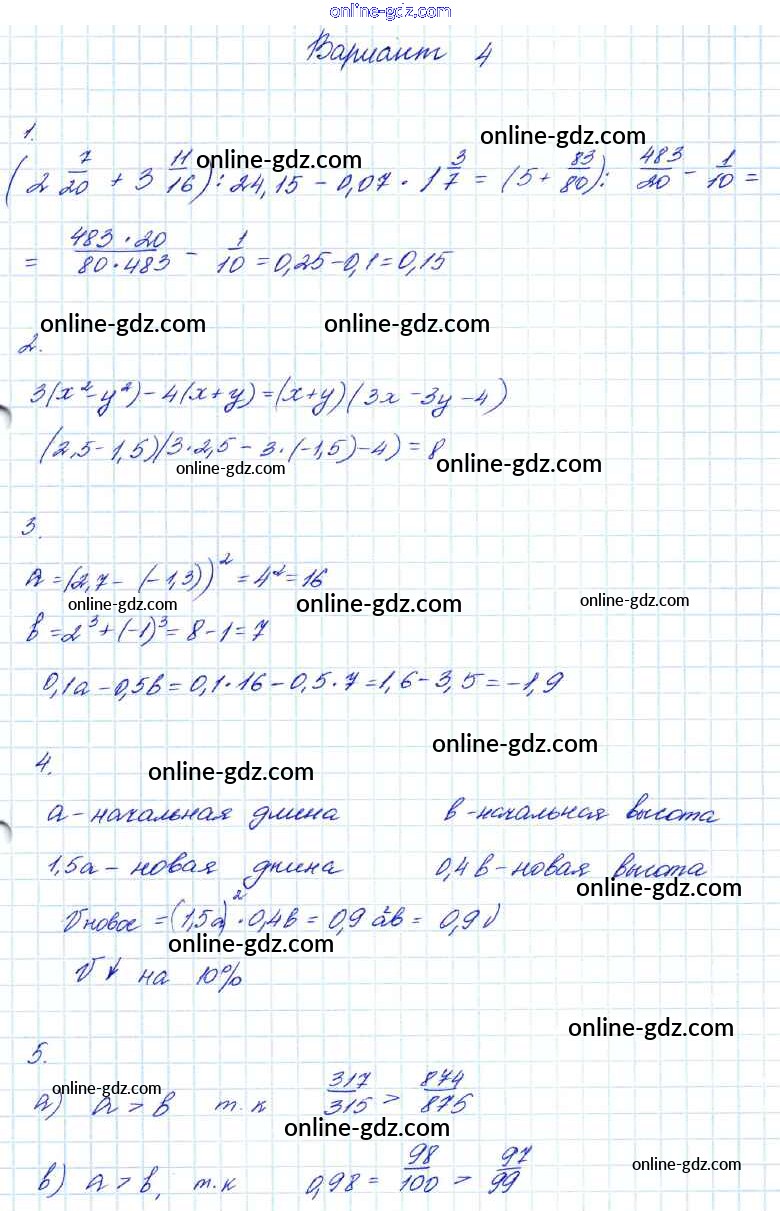 online-gdz.com
Вариант 4
1.
online-gdz.com
online-gdz.com
(2 7/20 + 3 11/16) : 24,15 - 0,07 · 1 3/7 = (5 + 83/80) : 483/20 - 1/10 =
= 483·20/80·483 - 1/10 = 0,25 - 0,1 = 0,15
online-gdz.com online-gdz.com
2.
3(x² - y²) - 4(x + y) = (x + y)(3x - 3y - 4)
(2,5 - 1,5)(3·2,5 - 3·(-1,5) - 4) = 8
online-gdz.com online-gdz.com
3.
a = (2,7 - (-1,3))² = 4² = 16
online-gdz.com online-gdz.com online-gdz.com
b = 2³ + (-1)³ = 8 - 1 = 7
0,1a - 0,5b = 0,1·16 - 0,5·7 = 1,6 - 3,5 = -1,9
online-gdz.com
4.
online-gdz.com
a - начальная длина b - начальная высота
1,5a - новая длина 0,4b - новая высота
online-gdz.com
Vновое = (1,5a)² · 0,4b = 0,9a²b = 0,9V
online-gdz.com
V ↓ на 10%
online-gdz.com
5.
online-gdz.com
а) a > b т.к 317/315 > 874/875
online-gdz.com
в) a > b, т.к 0,98 = 98/100 > 97/99
online-gdz.com